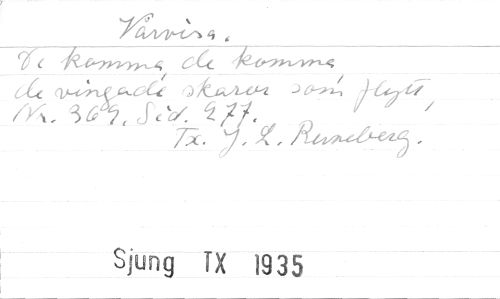 Vårvisa.
De komma, de komma,
de vingade skaror som flytt,
Nr. 369. Sid. 277.
Tx. J. L. Runeberg.
Sjung TX 1935